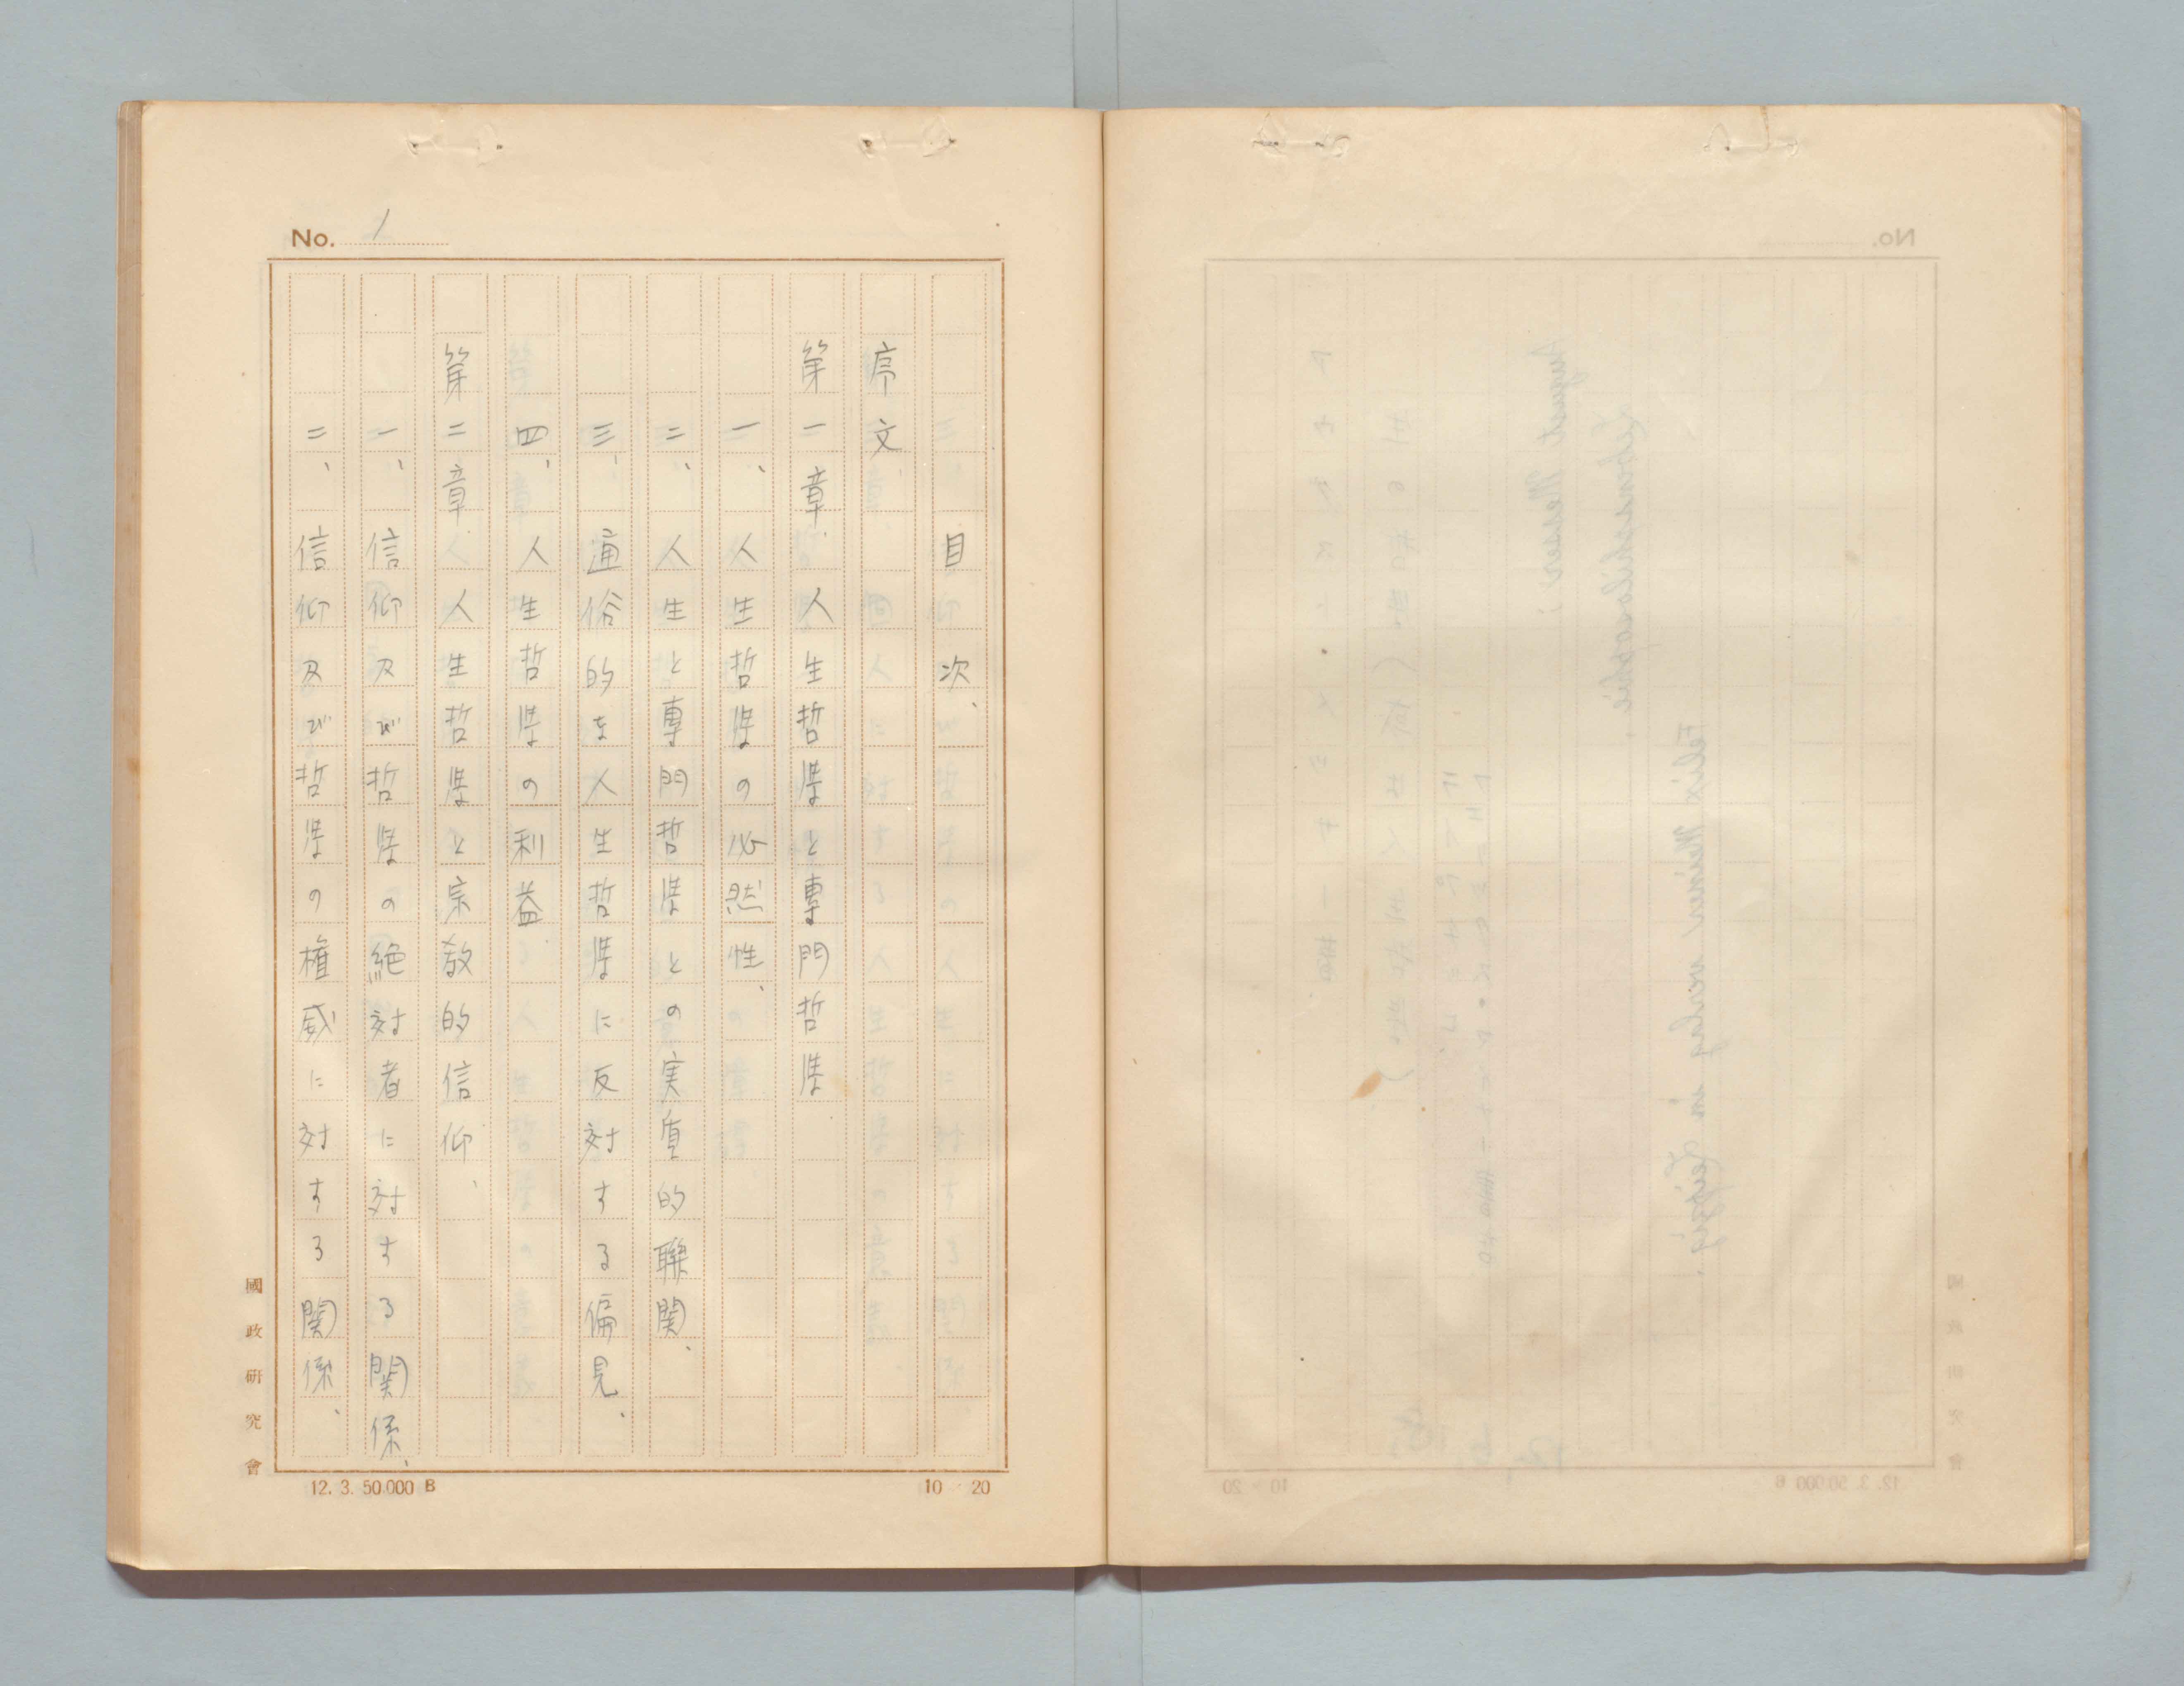 No. 1
目次、
序文、
第一章、人生哲学と専門哲学
一、人生哲学の必然性、
二、人生と専門哲学との実質的聯関、
三、通俗的な人生哲学に反対する偏見、
四、人生哲学の利益、
第二章、人生哲学と宗教的信仰、
一、信仰及び哲学の絶対者に対する関係、
二、信仰及び哲学の権威に対する関係、
國政研究會
12. 3. 50.000 B
10 × 20